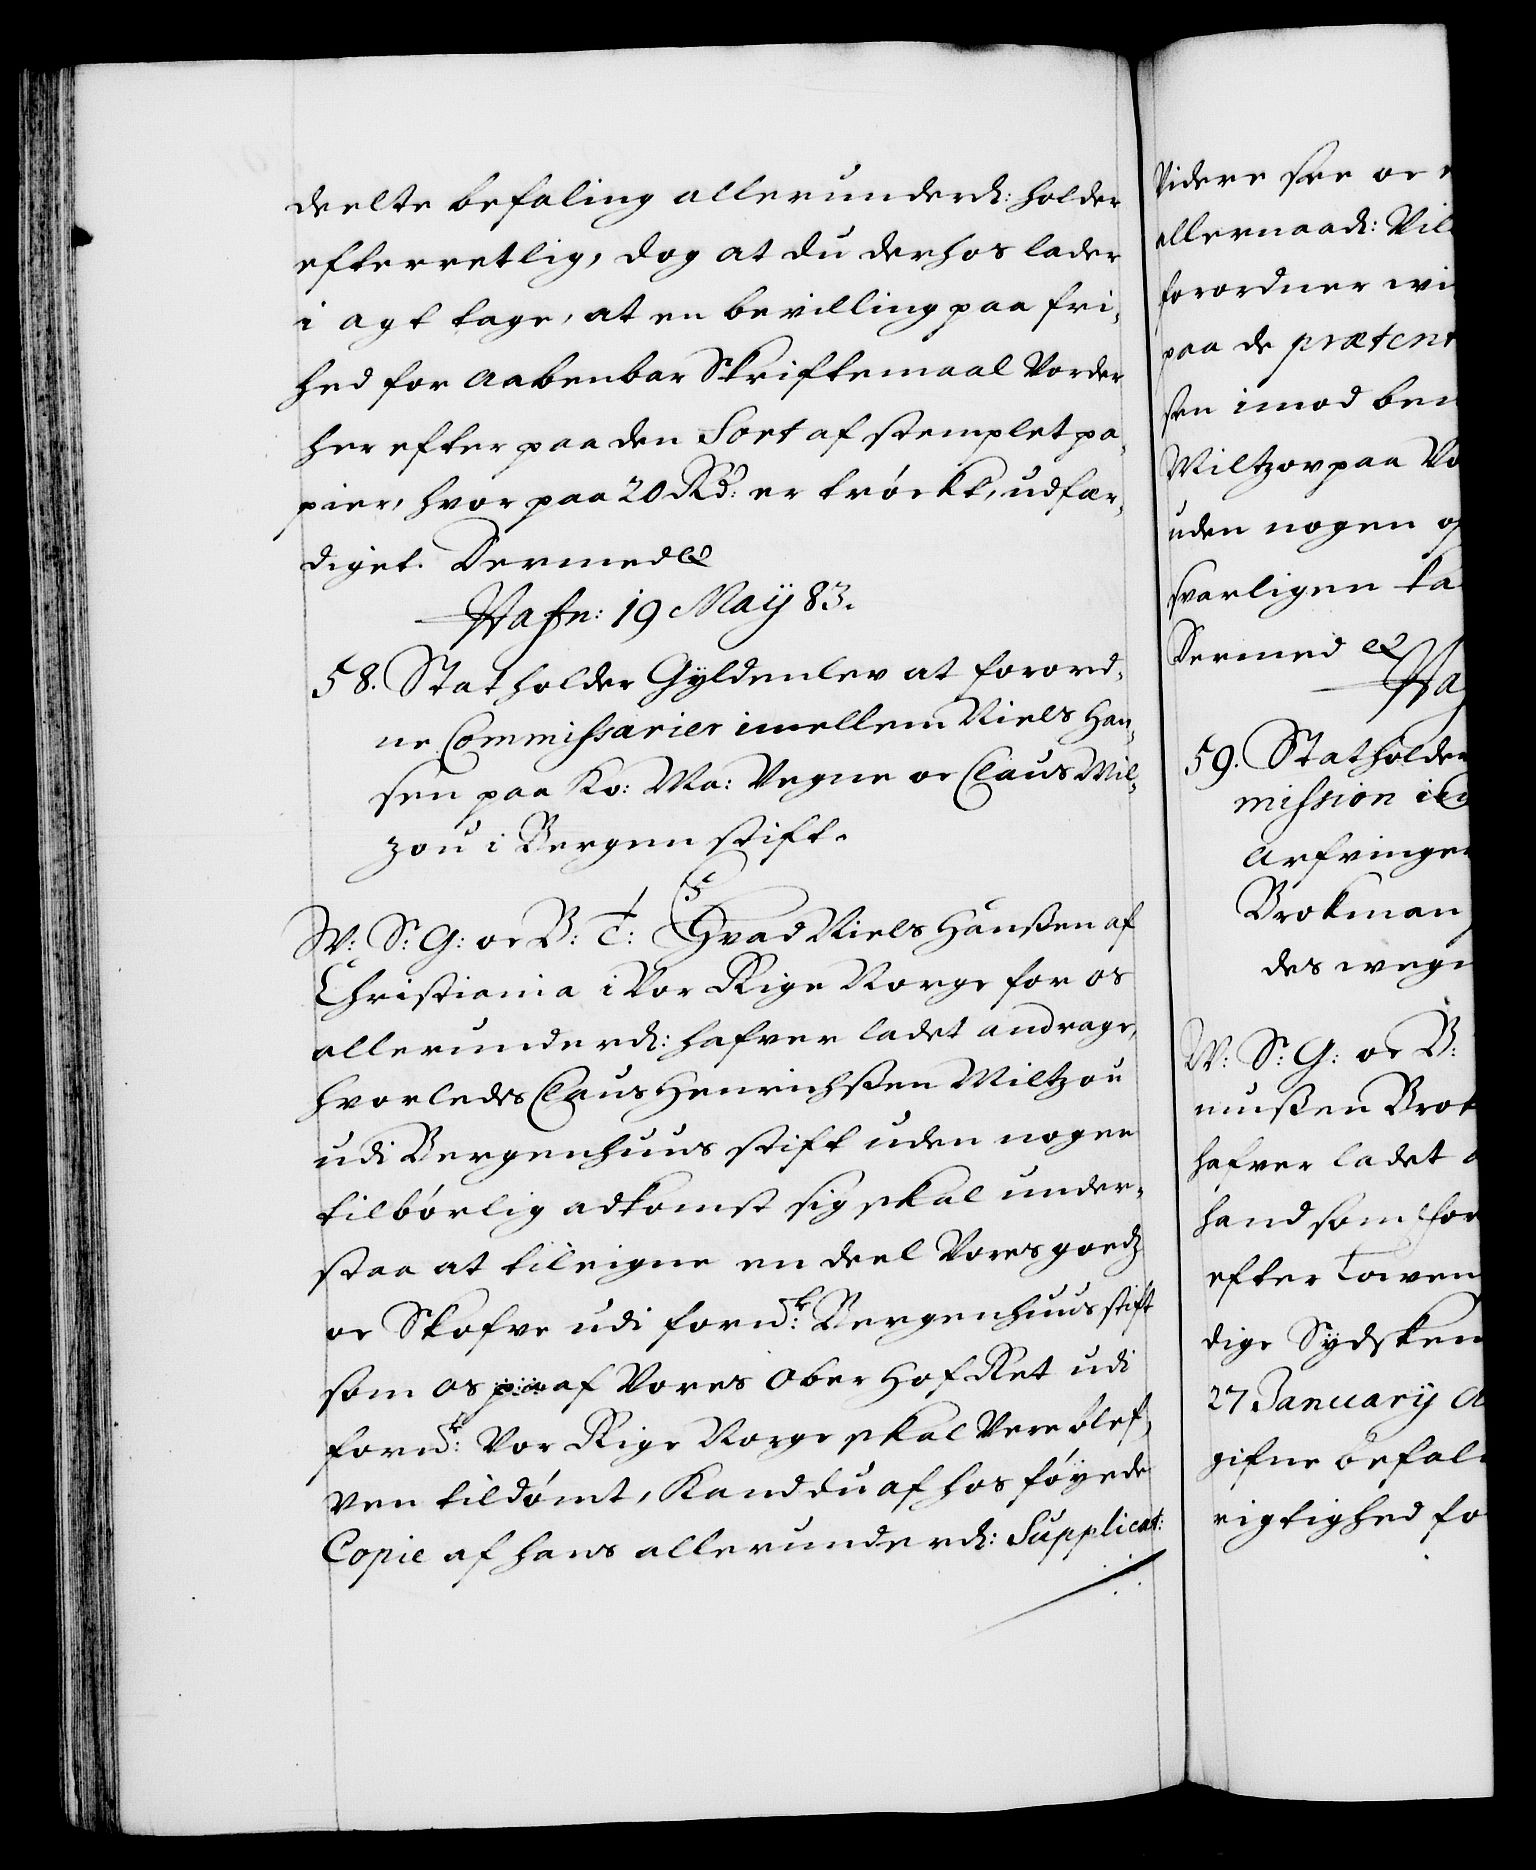 deelte befaling allerunderd: holder
efterretlig, dog at du derhos lader
i agt tage, at en bevilling paa fri,
hed for aabenbar Skriftemaal Vorder
her efter paa den Sort af stemplet pa,
pier, hvor paa 20 Rd: er trøckt, udfær,
diget. Dermed &
Hafn: 19 Maij 83.
58. Statholder Gyldenlev at forord,
ne Commissarier imellem Niels Han,
sen paa Ko: Ma: Vegne oc Claus Mil,
zou i Bergen stift.
W: S: G: oc B: T: Hvad Niels Hanßen af
Christiania i Vor Rige Norge for os
allerunderd: hafver ladet andrage,
hvorledes Claus Henrichßen Miltzou
udi Bergenhuus stift uden nogen
tilbørlig adkomst sig skal under,
staa at tileigne en deel Vores goedz
oc Skofve udi fornd: Bergenhuus stift
som os af Vores Ober Hof Ret udi
fornd: Vor Rige Norge skal Vere blef,
ven tildømt, Kand du af hos føyede
Copie af hans allerunderd: Supplicat:
Videre see oc
allernaad: Vil
forordner wi
paa de prætent
sen imod ben
Miltzov paa Vo
uden nogen op
svarligen ta
Dermed &
Haf
59. Statholder
mission
Arfvinger
Brokman
des wegn
W: S: G: oc B:
mußen Brok
hafver ladet a
hand som for
efter Lawen
dige Sydsken
27 January A
gifne befal
rigtighed fo